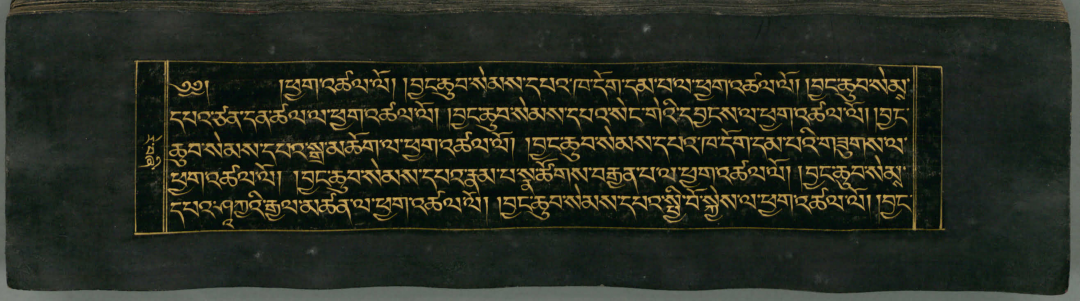 ༄༅། །ཕྱག་འཚལ་ལོ། །བྱང་ཆུབ་སེམས་དཔའ་ཁ་དོག་དམ་པ་ལ་ཕྱག་འཚལ་ལོ། །བྱང་ཆུབ་སེམ་
དཔའ་ཙན་དན་ཚལ་ལ་ཕྱག་འཚལ་ལོ། །བྱང་ཆུབ་སེམས་དཔའ་སེང་གེའི་དབྱངས་ལ་ཕྱག་འཚལ་ལོ། །བྱང་
ཆུབ་སེམས་དཔའ་སྒྲ་མཆོག་ལ་ཕྱག་འཚལ་ལོ། །བྱང་ཆུབ་སེམས་དཔའ་ཁ་དོག་དམ་པའི་གཟུགས་ལ་
ཕྱག་འཚལ་ལོ། །བྱང་ཆུབ་སེམས་དཔའ་རྣམ་པ་སྣ་ཚོགས་བརྒྱན་པ་ལ་ཕྱག་འཚལ་ལོ། །བྱང་ཆུབ་སེམ་
དཔའ་ཤཱཀྱའི་རྒྱལ་མཚན་ལ་ཕྱག་འཚལ་ལོ། །བྱང་ཆུབ་སེམས་དཔའ་སྤྱི་བོ་སྐྱེས་ལ་ཕྱག་འཚལ་ལོ། །བྱང་